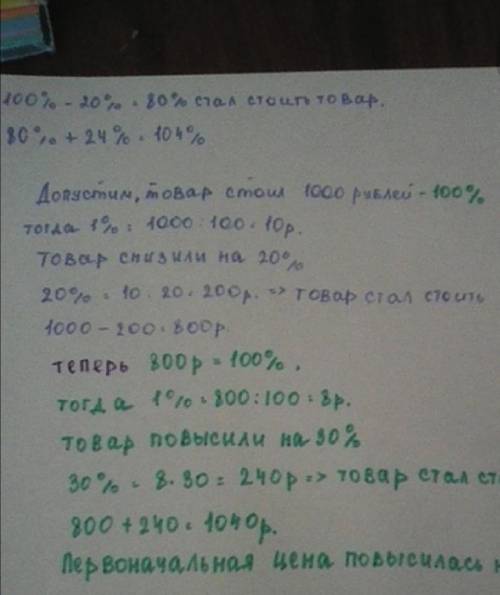 100% - 20% = 80% стал стоить товар.
80% + 24% = 104%
Допустим, товар стоил 1000 рублей - 100%
тогда 1% = 1000 : 100 = 10р.
товар снизили на 20%
20% = 10 · 20 = 200р. => товар стал стоить
1000 - 200 = 800р.
теперь 800р = 100%.
тогда 1% = 800 : 100 = 8р.
товар повысили на 30%
30% = 8 · 30 = 240р => товар стал ст
800 + 240 = 1040р.
Первоначальная цена повысилась н